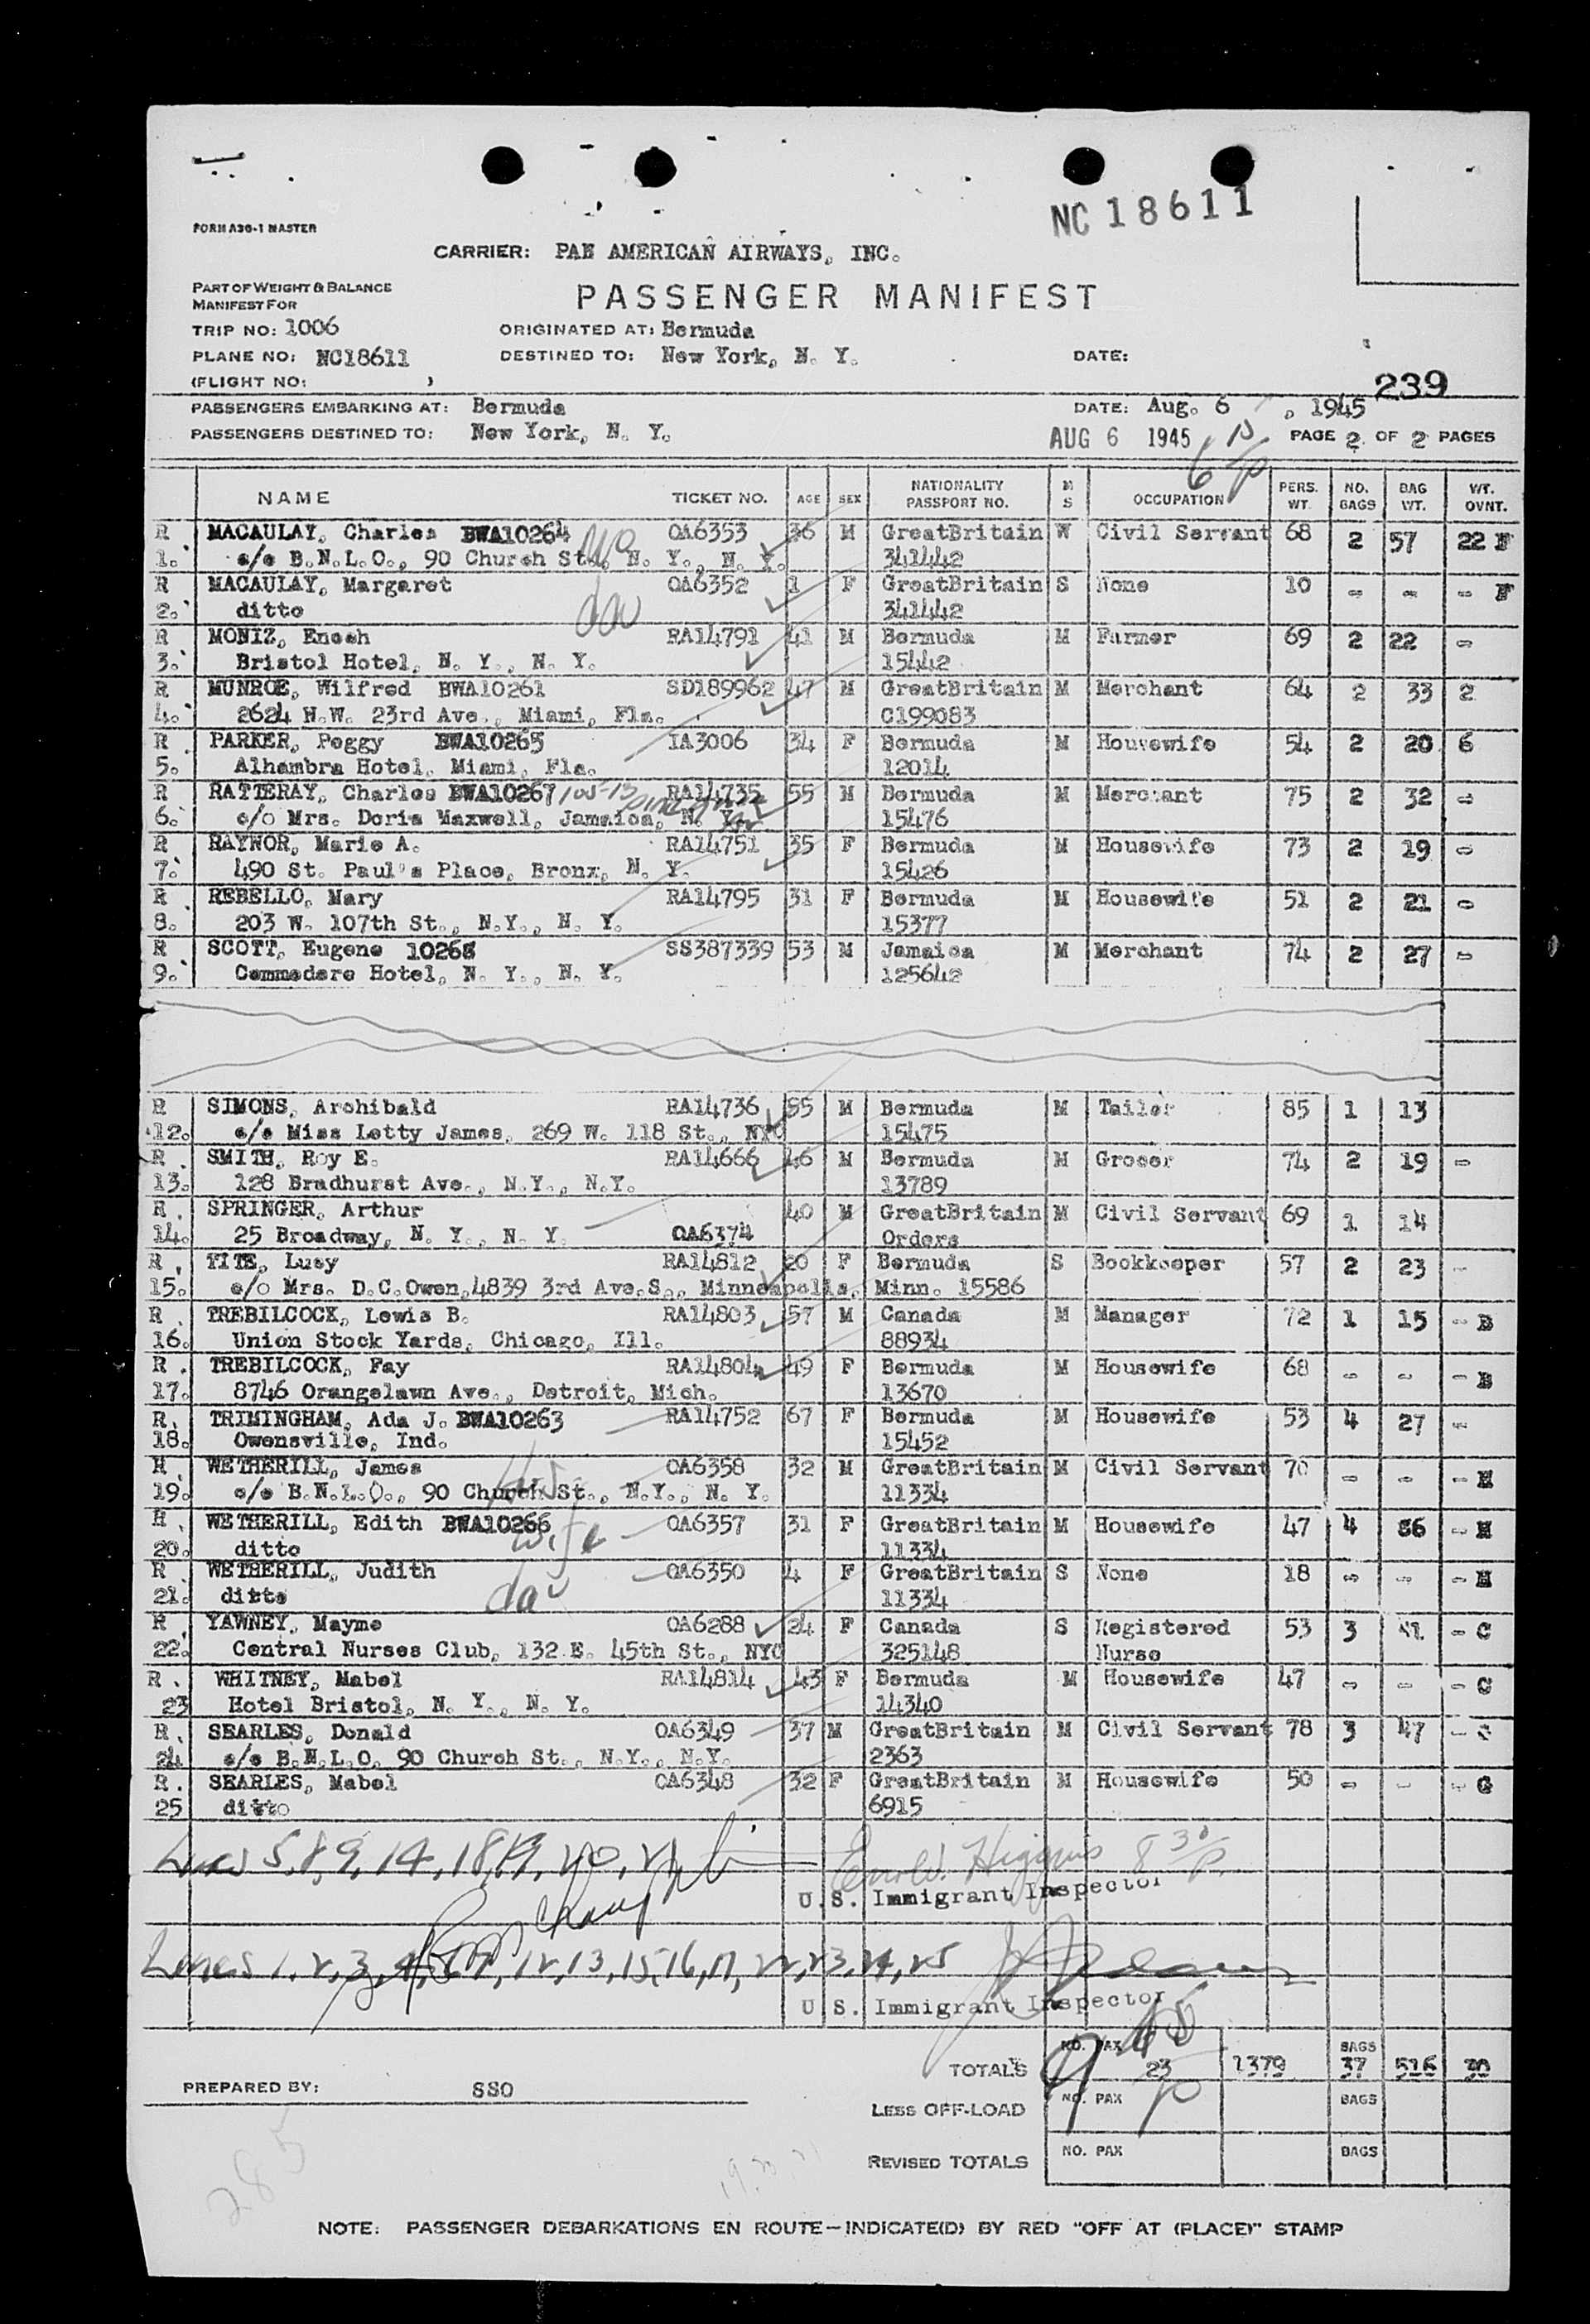 NC 18611
FORM A30-1 MASTER
CARRIER: PAN AMERICAN AIRWAYS, INC.
PART OF WEIGHT & BALANCE
MANIFEST FOR
PASSENGER MANIFEST
TRIP NO: 1006 ORIGINATED AT: Bermuda
PLANE NO: NC18611 DESTINED TO: New York, N. Y. DATE:
(FLIGHT NO: )
239
PASSENGERS EMBARKING AT: Bermuda DATE: Aug. 6 , 1945
PASSENGERS DESTINED TO: New York, N. Y. AUG 6 1945 PAGE 2 OF 2 PAGES
NAME TICKET NO. AGE SEX NATIONALITY PASSPORT NO. M S OCCUPATION PERS. WT. NO. BAGS BAG WT. WT. OVNT.
R MACAULAY, Charles BWA10264 OA6353 36 M GreatBritain W Civil Servant 68 2 57 22 F
1. c/o B.N.L.O., 90 Church St., N. Y., N. Y. 341442
R MACAULAY, Margaret OA6352 1 F GreatBritain S None 10 - - - F
2. ditto dau 341442
R MONIZ, Enoch RA14791 41 M Bermuda M Farmer 69 2 22 -
3. Bristol Hotel, N. Y., N. Y. 15442
R MUNROE, Wilfred BWA10261 SD189962 47 M GreatBritain M Merchant 64 2 33 2
4. 2624 N.W. 23rd Ave., Miami, Fla. C199083
R PARKER, Peggy BWA10265 IA3006 34 F Bermuda M Housewife 54 2 20 6
5. Alhambra Hotel, Miami, Fla. 12014
R RATTERAY, Charles BWA10267 105-13 RA14735 55 M Bermuda M Merchant 75 2 32 -
6. c/o Mrs. Doris Maxwell, Jamaica, N. Y. 15476
R RAYNOR, Marie A. RA14751 35 F Bermuda M Housewife 73 2 19 -
7. 490 St. Paul's Place, Bronx, N. Y. 15426
R REBELLO, Mary RA14795 31 F Bermuda M Housewife 51 2 21 -
8. 203 W. 107th St., N.Y., N. Y. 15377
R SCOTT, Eugene 10268 SS387339 53 M Jamaica M Merchant 74 2 27 -
9. Commodore Hotel, N. Y., N. Y. 125642
R SIMONS, Archibald RA14736 55 M Bermuda M Tailor 85 1 13
12. c/o Miss Letty James, 269 W. 118 St., NYC 15475
R SMITH, Roy E. RA14666 46 M Bermuda M Grocer 74 2 19 -
13. 128 Bradhurst Ave., N.Y., N.Y. 13789
R. SPRINGER, Arthur 40 M GreatBritain M Civil Servant 69 1 14
14. 25 Broadway, N. Y., N. Y. OA6374 Orders
R. TITE, Lucy RA14812 20 F Bermuda S Bookkeeper 57 2 23 -
15. c/o Mrs. D.C.Owen, 4839 3rd Ave.S., Minneapolis, Minn. 15586
R. TREBILCOCK, Lewis B. RA14803 57 M Canada M Manager 72 1 15 - B
16. Union Stock Yards, Chicago, Ill. 88934
R. TREBILCOCK, Fay RA14804 49 F Bermuda M Housewife 68 - - - B
17. 8746 Orangelawn Ave., Detroit, Mich. 13670
R. TRIMINGHAM, Ada J. BWA10263 RA14752 67 F Bermuda M Housewife 53 4 27 -
18. Owensville, Ind. 15452
H. WETHERILL, James OA6358 32 M GreatBritain M Civil Servant 70 - - - H
19. c/o B.N.L.O., 90 Church St., N.Y., N. Y. 11334
H. WETHERILL, Edith BWA10266 OA6357 31 F GreatBritain M Housewife 47 4 86 - H
20. ditto wife 11334
R WETHERILL, Judith OA6350 4 F GreatBritain S None 18 - - - H
21. ditto dau 11334
R. YAWNEY, Mayme OA6288 24 F Canada S Registered 53 3 41 - C
22. Central Nurses Club, 132 E. 45th St., NYC 325148 Nurse
R. WHITNEY, Mabel RA14814 43 F Bermuda M Housewife 47 - - - C
23 Hotel Bristol, N. Y., N. Y. 14340
R. SEARLES, Donald OA6349 37 M GreatBritain M Civil Servant 78 3 47 -
24 c/o B.N.L.O. 90 Church St., N.Y., N.Y. 2363
R. SEARLES, Mabel OA6348 32 F GreatBritain M Housewife 50 - - - G
25 ditto 6915
Lines 5,8,9,14,18,19,20,21 Higgins 8 30/P
U.S. Immigrant Inspector
Lines 1,2,3,4,6,7,12,13,15,16,17,22,23,24,25
U.S. Immigrant Inspector
TOTALS NO. PAX 23 1379 BAGS 37 516 30
PREPARED BY: SSO
LESS OFF-LOAD NO. PAX BAGS
REVISED TOTALS NO. PAX BAGS
285
19, 20, 21
NOTE: PASSENGER DEBARKATIONS EN ROUTE—INDICATE(D) BY RED "OFF AT (PLACE)" STAMP